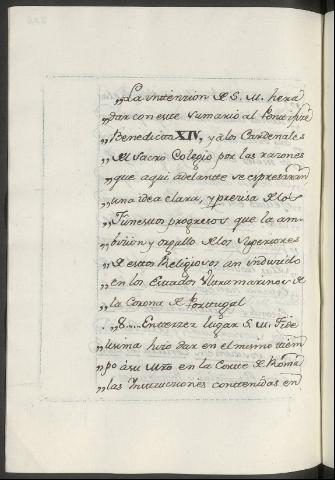 „La intencion de S. M. hera
„dar con este sumario al Pontifize
„Benedicto XIV, y a los Cardenales
„del Sacro Colegio por las razones
„que aqui adelante se expresaran
„una idea clara, y precisa de los
„funestos progresos que la am-
„bicion y orgullo de los Superiores
„de estos Religiosos an inducido
„en los Estados Ultramarinos de
„la Corona de Portugal
„8.... En tercer lugar S. M. Fide
„lisima hizo dar en el mismo tiem
„po a su Mro en la Corte de Roma
„las Instrucciones contenidas en